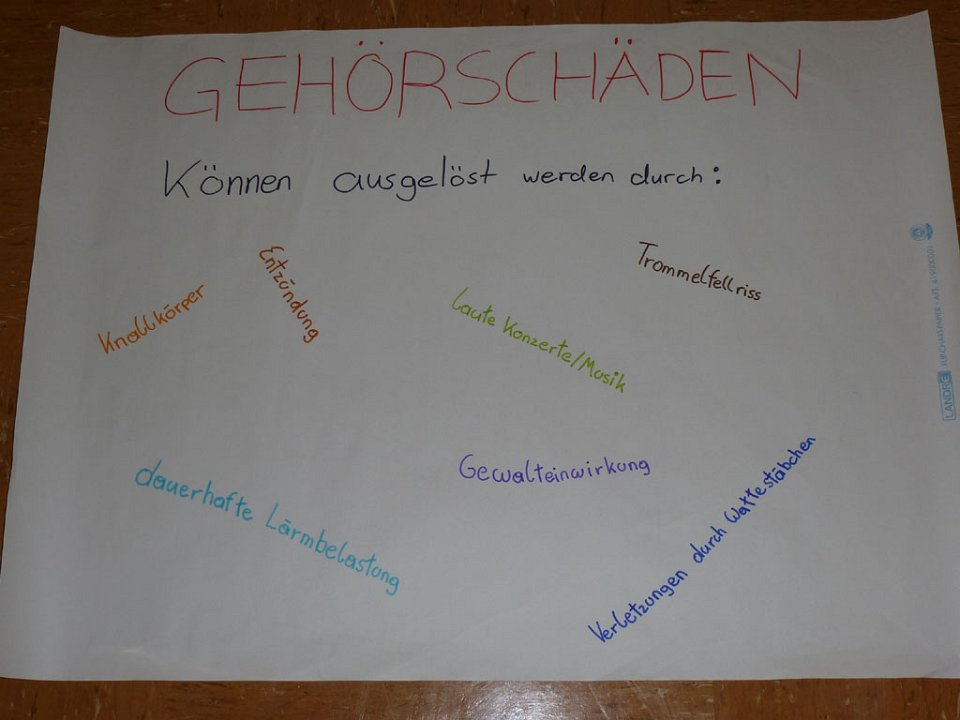 GEHÖRSCHÄDEN
Können ausgelöst werden durch:
Knallkörper
Entzündung
Laute Konzerte/Musik
Trommelfellriss
dauerhafte Lärmbelastung
Gewalteinwirkung
Verletzungen durch Wattestäbchen
LANDRÉ